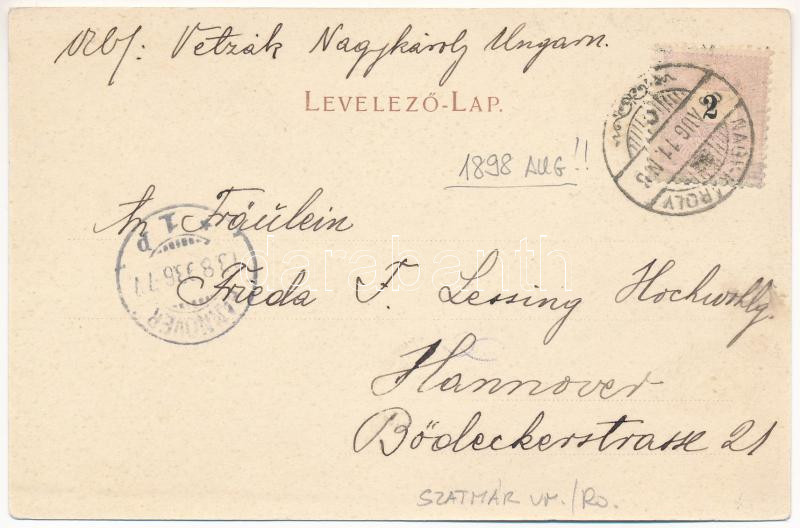 Abs: Vetzák Nagykároly Ungarn.
LEVELEZŐ-LAP.
2
NAGY-KÁROLY
AUG 11
1898 AUG !!
An Fräulein
Frieda F. Lessing Hochwohlg.
Hannover
Bödeckerstrasse 21
HANNOVER
1 p
darabanth
SZATMÁR VM./RO.